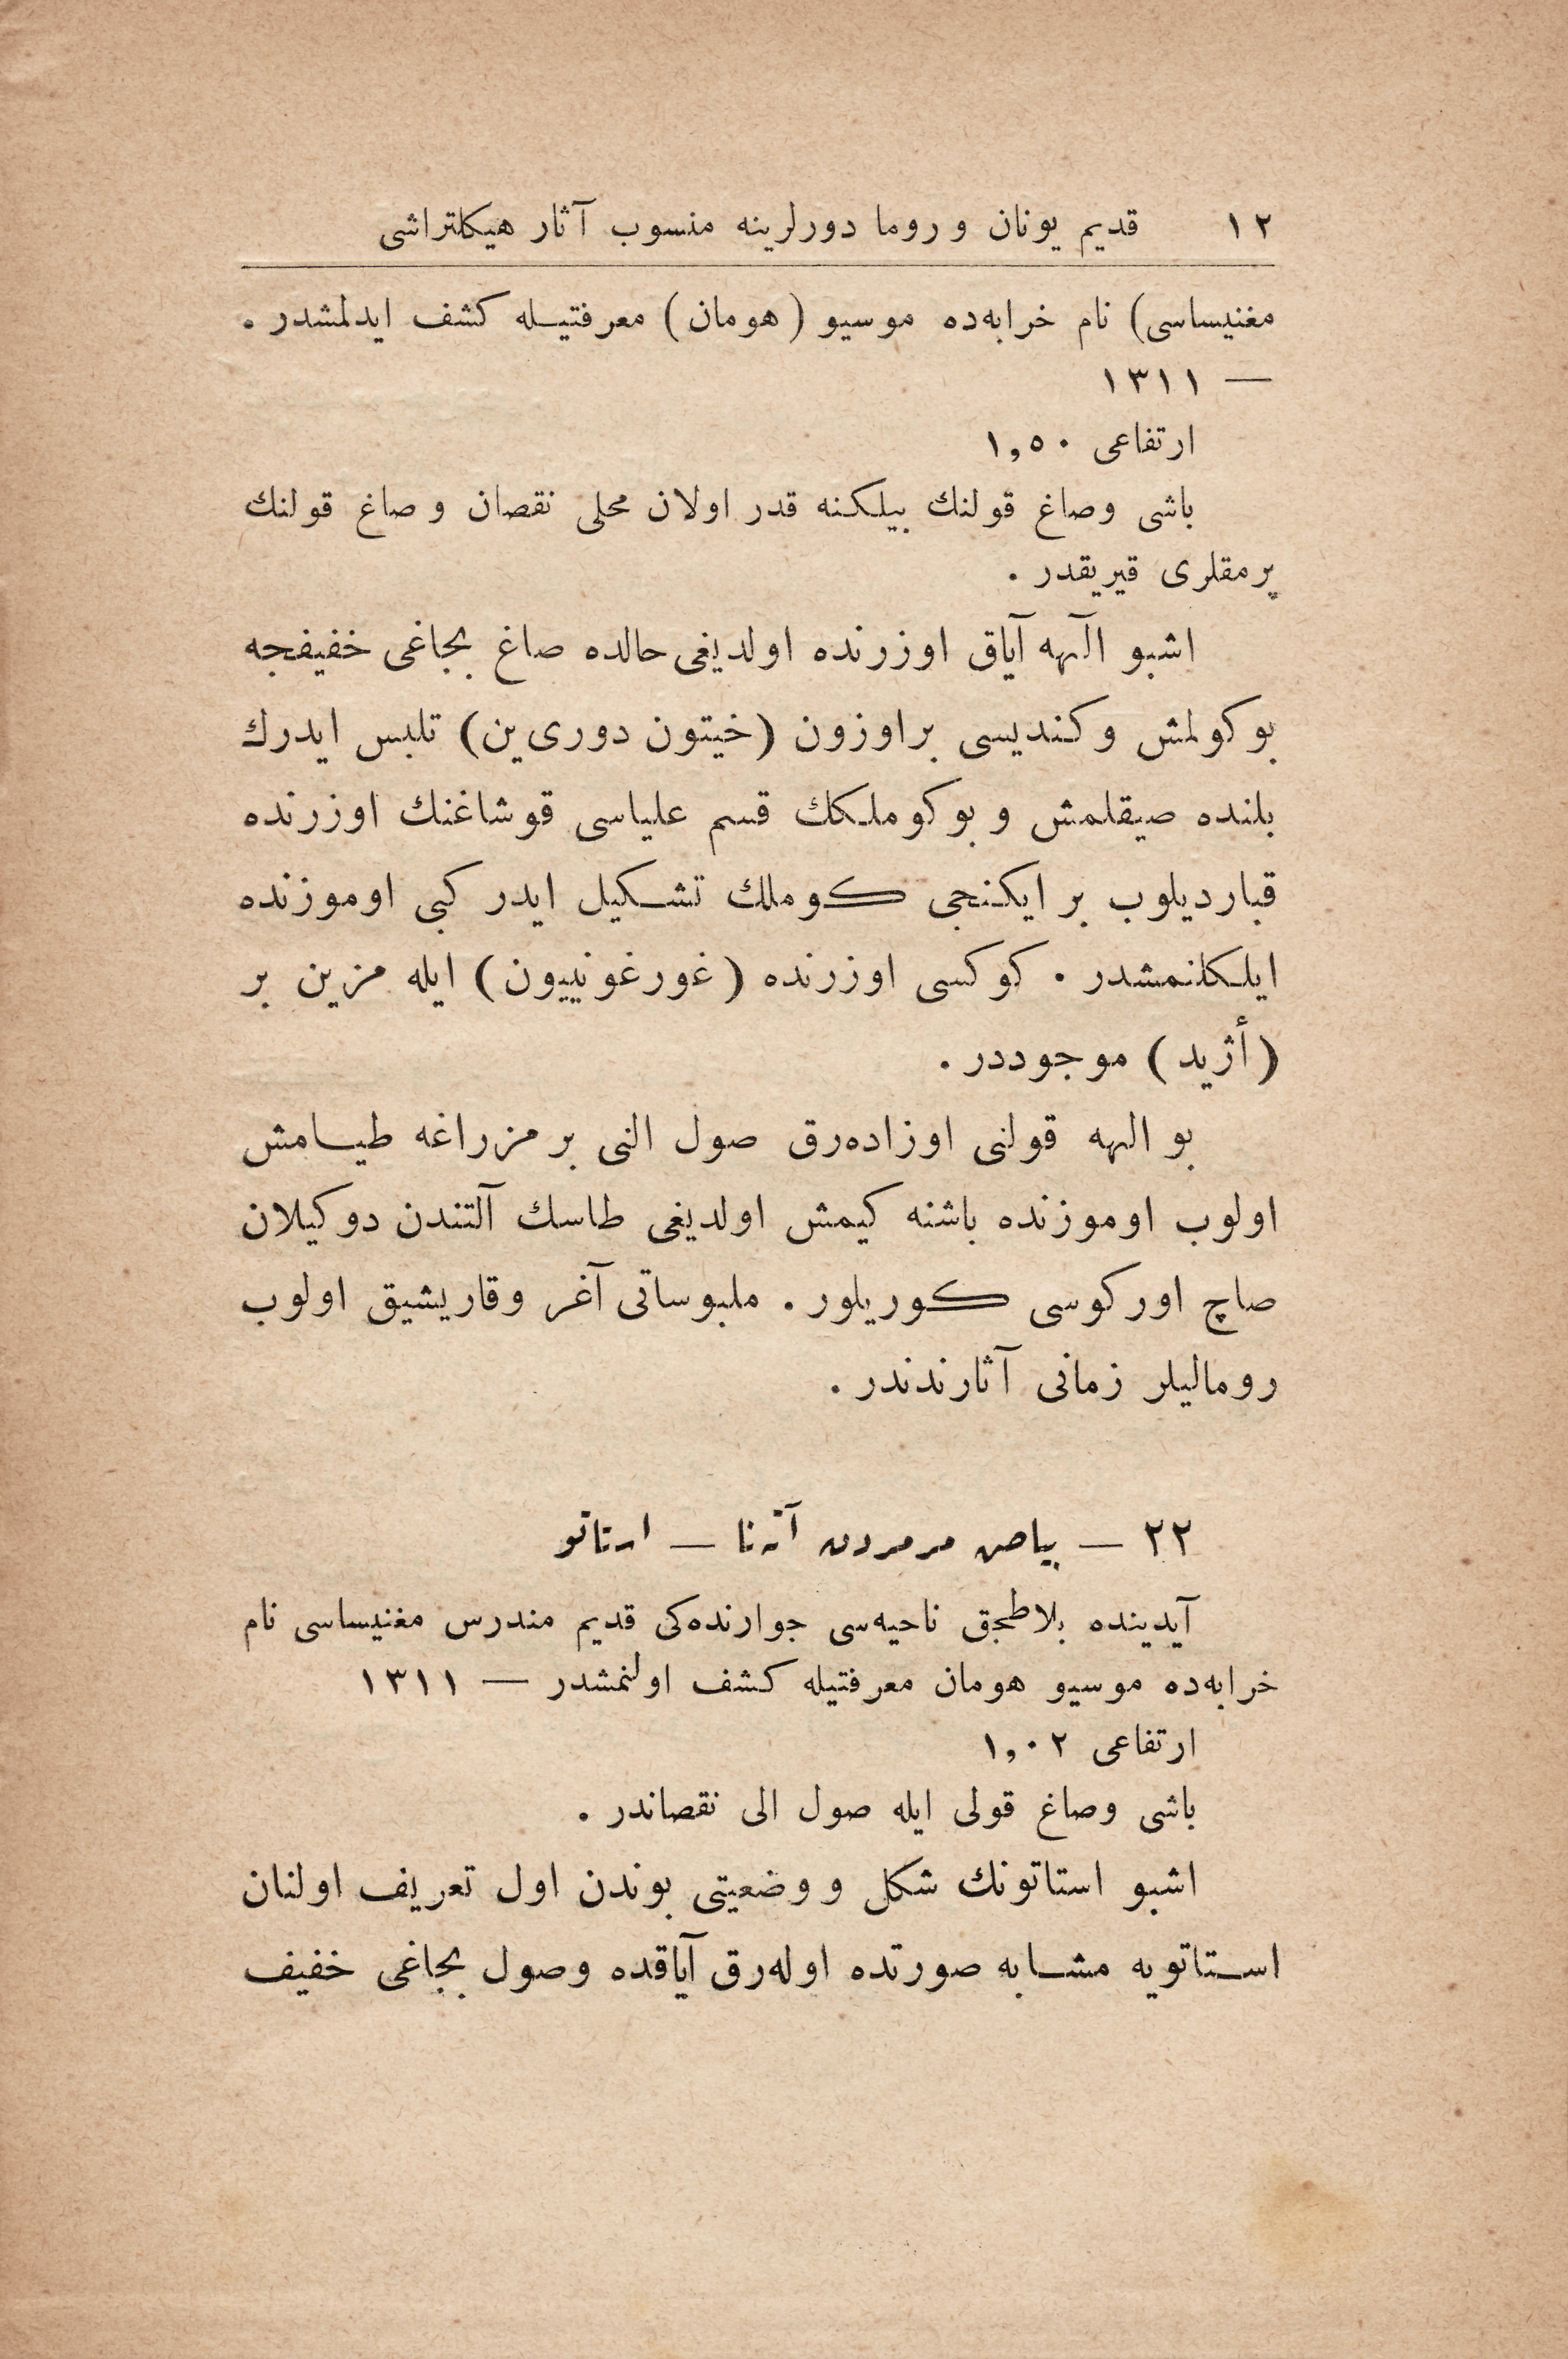 ١٢ قديم يونان و روما دورلرينه منسوب آثار هيكلتراشى
مغنيساسى) نام خرابه‌ده موسيو (هومان) معرفتيله كشف ايدلمشدر .
— ١٣١١
ارتفاعى ١,٥٠
باشى وصاغ قولنك بيلكنه قدر اولان محلى نقصان و صاغ قولنك
پرمقلرى قيريقدر .
اشبو آلهه آياق اوزرنده اولديغى حالده صاغ بجاغى خفيفجه
بوكولمش وكنديسى براوزون (خيتون دورى‌ين) تلبس ايدرك
بلنده صيقلمش و بوكوملكك قسم علياسى قوشاغنك اوزرنده
قبارديلوب بر ايكنجى كوملك تشكيل ايدر كبى اوموزنده
ايلكلنمشدر . كوكسى اوزرنده (غورغونييون) ايله مزين بر
(أژيد) موجوددر .
بو الهه قولنى اوزاده‌رق صول النى بر مزراغه طيامش
اولوب اوموزنده باشنه كيمش اولديغى طاسك آلتندن دوكيلان
صاچ اوركوسى كوريلور . ملبوساتى آغر وقاريشيق اولوب
روماليلر زمانى آثارندندر .
٢٢ — بياض مرمردن آته‌نا — استاتو
آيدينده بلاطجق ناحيه‌سى جوارنده‌كى قديم مندرس مغنيساسى نام
خرابه‌ده موسيو هومان معرفتيله كشف اولنمشدر — ١٣١١
ارتفاعى ١,٠٢
باشى وصاغ قولى ايله صول الى نقصاندر .
اشبو استاتونك شكل و وضعيتى بوندن اول تعريف اولنان
استاتويه مشابه صورتده اوله‌رق آياقده وصول بجاغى خفيف